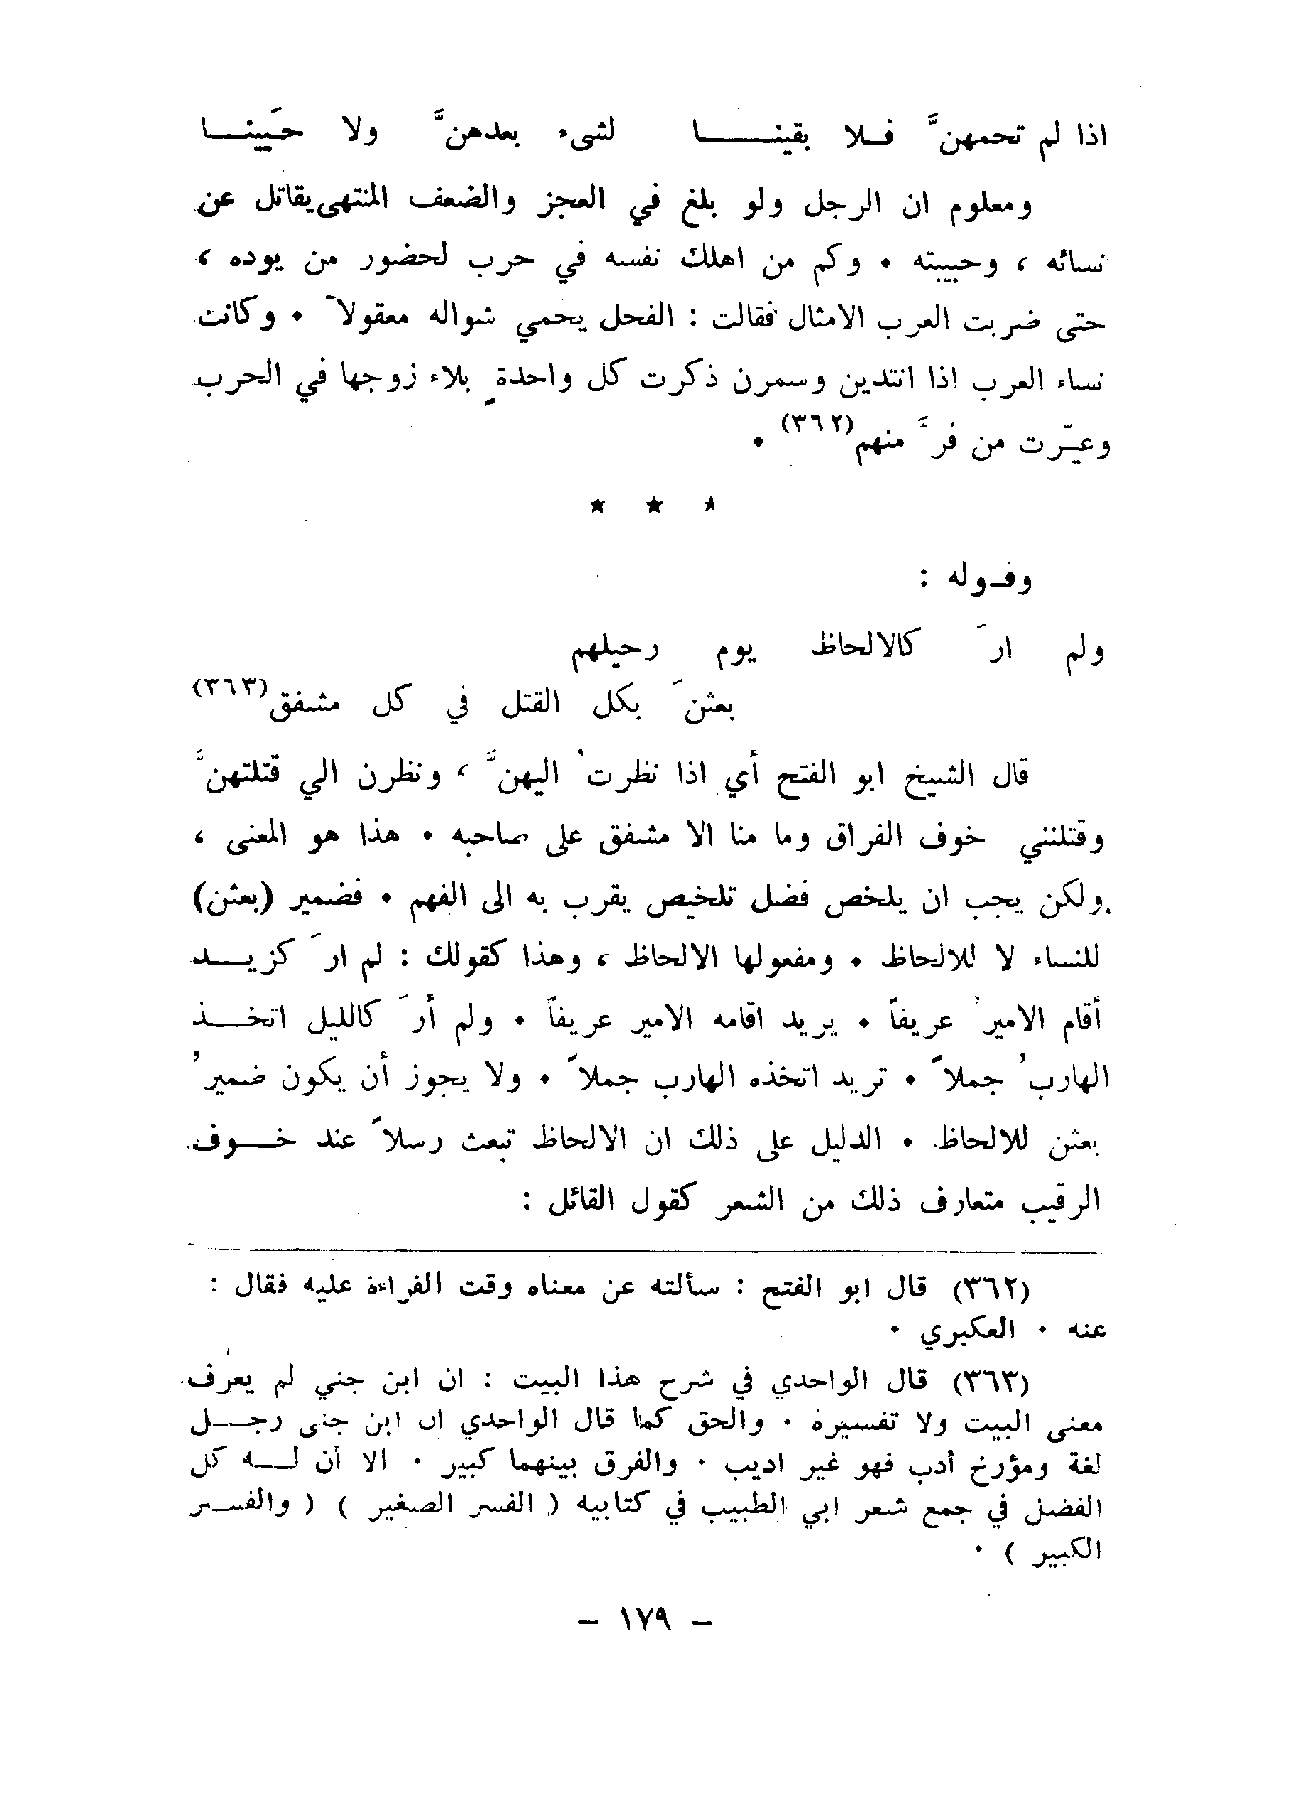 اذا لم تحمهنَّ فــلا بقينــــا لشىء بعدهنَّ ولا حَيينــا
ومعلوم ان الرجل ولو بلغ في العجز والضعف المنتهى يقاتل عن
نسائه ، وحبيبته ٠ وكم من اهلك نفسه في حرب لحضور من يوده ،
حتى ضربت العرب الامثال فقالت : الفحل يحمي شواله معقولاً ٠ وكانت
نساء العرب اذا انتدين وسمرن ذكرت كل واحدةٍ بلاء زوجها في الحرب
وعيّرت من فرَّ منهم(٣٦٢) ٠
★ ★ ★
وقـوله :
ولم ارَ كالالحاظ يوم رحيلهم
بعثنَ بكل القتل في كل مشفق(٣٦٣)
قال الشيخ ابو الفتح أي اذا نظرتُ اليهنَّ ، ونظرن الي قتلتهنَّ
وقتلنني خوف الفراق وما منا الا مشفق على صاحبه ٠ هذا هو المعنى ،
ولكن يجب ان يلخص فضل تلخيص يقرب به الى الفهم ٠ فضمير (بعثن)
للنساء لا للالحاظ ٠ ومفعولها الالحاظ ، وهذا كقولك : لم ارَ كزيــد
أقام الاميرُ عريفاً ٠ يريد اقامه الامير عريفاً ٠ ولم أرَ كالليل اتخــذ
الهاربُ جملاً ٠ تريد اتخذه الهارب جملاً ٠ ولا يجوز أن يكون ضميرُ
بعثن للالحاظ ٠ الدليل على ذلك ان الالحاظ تبعث رسلاً عند خــوف
الرقيب متعارف ذلك من الشعر كقول القائل :
(٣٦٢) قال ابو الفتح : سألته عن معناه وقت القراءة عليه فقال :
عنه ٠ العكبري ٠
(٣٦٣) قال الواحدي في شرح هذا البيت : ان ابن جني لم يعرف
معنى البيت ولا تفسيره ٠ والحق كما قال الواحدي ان ابن جنى رجــل
لغة ومؤرخ أدب فهو غير اديب ٠ والفرق بينهما كبير ٠ الا أن لــه كل
الفضل في جمع شعر ابي الطبيب في كتابيه ( الفسر الصغير ) ( والفســر
الكبير ) ٠
– ١٧٩ –